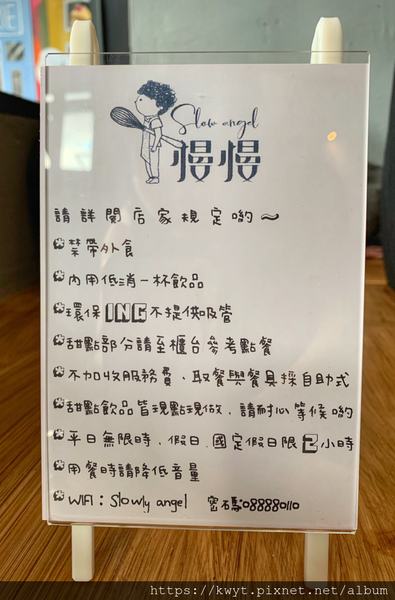 Slow angel
慢慢
請詳閱店家規定喲~
禁帶外食
內用低消一杯飲品
環保ING不提供吸管
甜點部分請至櫃台參考點餐
不加收服務費、取餐與餐具採自助式
甜點飲品皆現點現做、請耐心等候喲
平日無限時、假日.國定假日限2小時
用餐時請降低音量
WIFI：Slowly angel 密碼:088880110
https://kwyt.pixnet.net/album